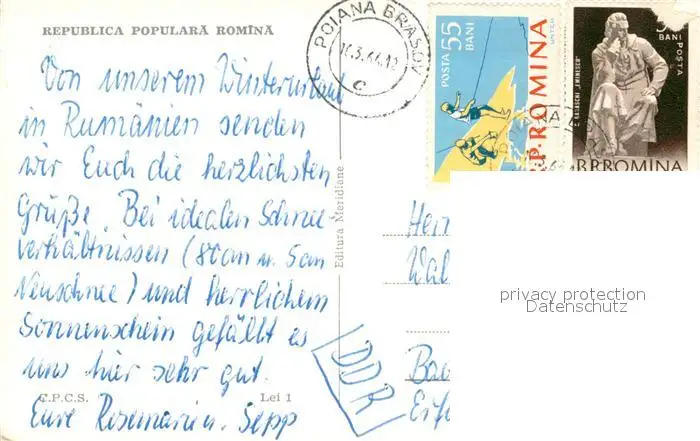 REPUBLICA POPULARĂ ROMÎNĂ
Von unserem Winterurlaub
in Rumänien senden
wir Euch die herzlichsten
Grüße. Bei idealen Schnee-
verhältnissen (80cm u. 5cm
Neuschnee) und herrlichem
Sonnenschein gefällt es
uns hier sehr gut.
C.P.C.S. Lei 1
Eure Rosemarie u. Sepp
Editura Meridiane
POIANA BRASOV
c
POSTA 55 BANI
R.P.ROMINA
BANI POSTA
"EMINESCU"
R.P.ROMINA
Herr
Wal
DDR
privacy protection
Datenschutz